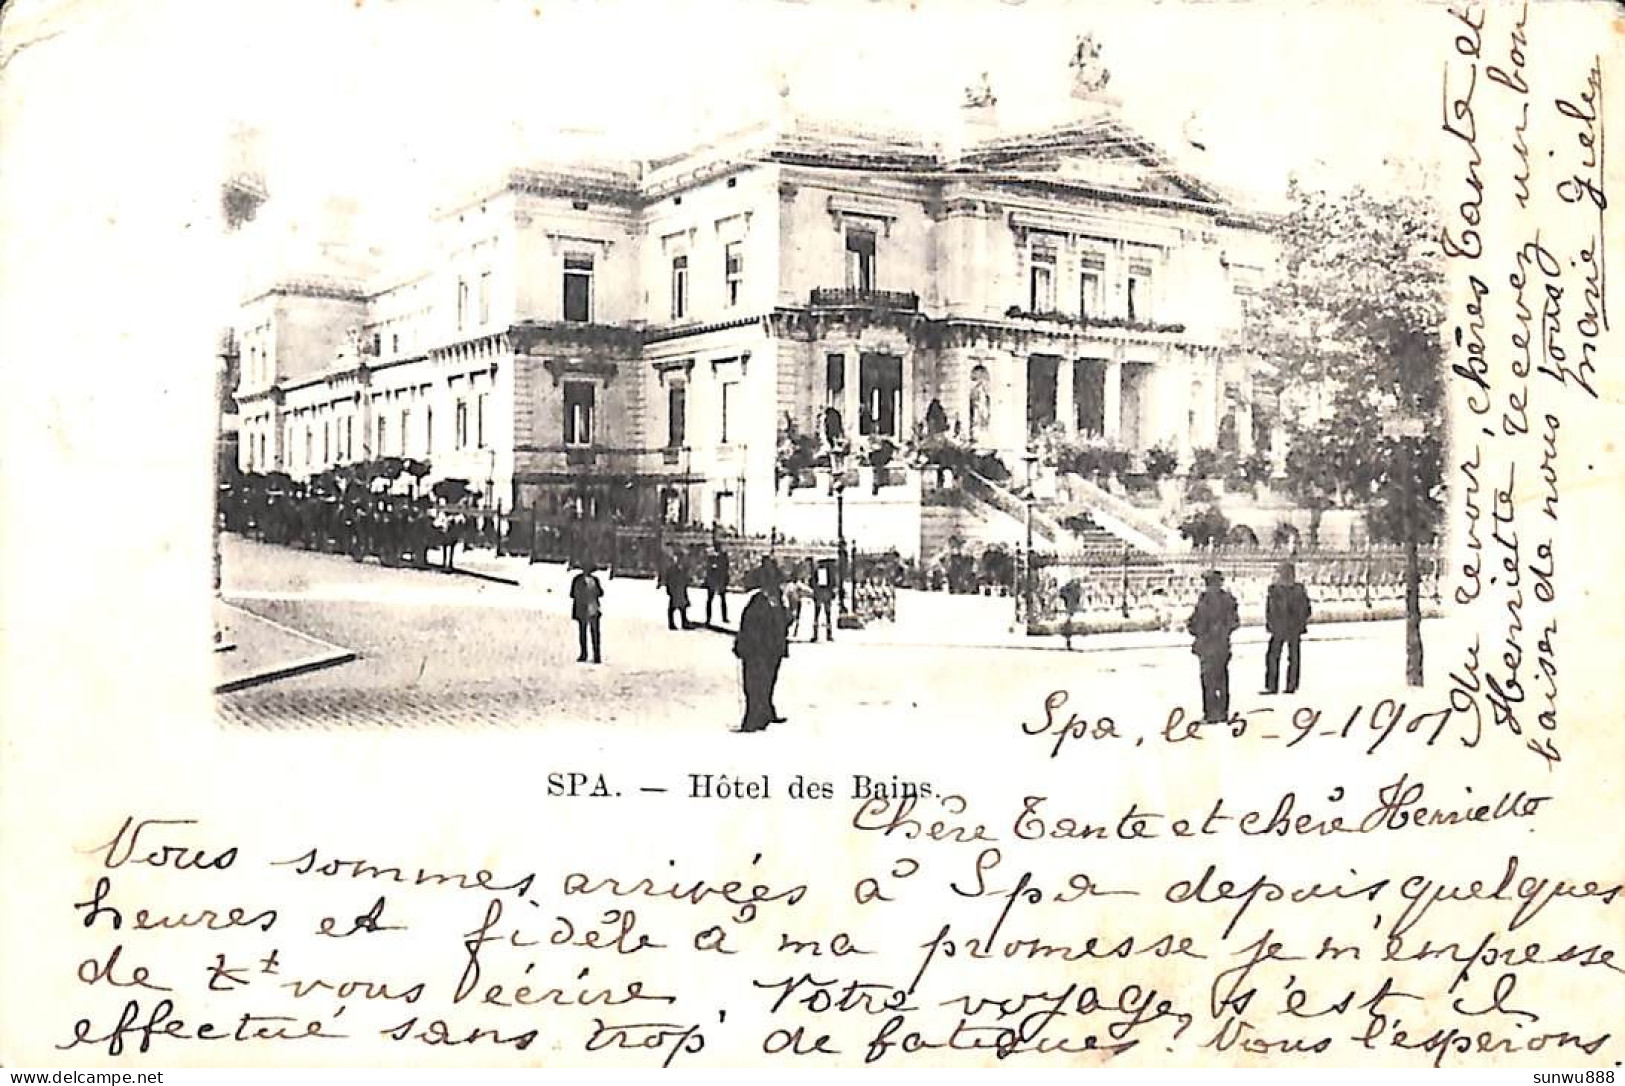 SPA. — Hôtel des Bains.
Spa, le 5-9-1901
Chère Tante et chère Henriette
Nous sommes arrivées à Spa depuis quelques
heures et fidèle à ma promesse je m'empresse
de vous écrire. Notre voyage s'est il
effectué sans trop de fatigues? Nous l'espérons.
Au revoir, chères Tante et
Henriette recevez un bon
baiser de nous tous
Marie Gielen
delcampe.net
sunwu888